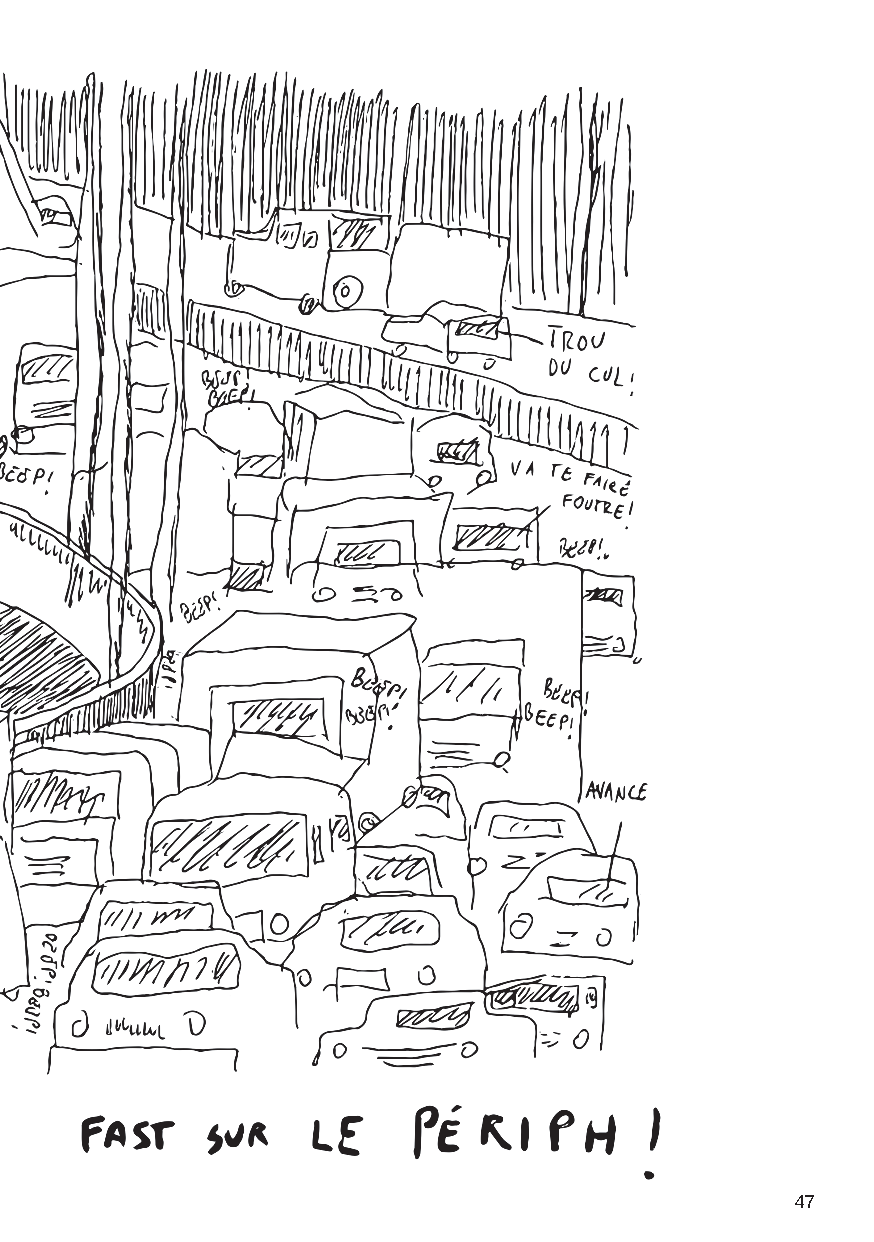 TROU
DU CUL!
BEEP!
BEEP!
VA TE FAIRE
FOUTRE!
BEEP!
BEEP!
BEEP!
BEEP!
BEEP!
BEEP!
BEEP!
AVANCE
BEEP! BEEP!
FAST SUR LE PÉRIPH !
47